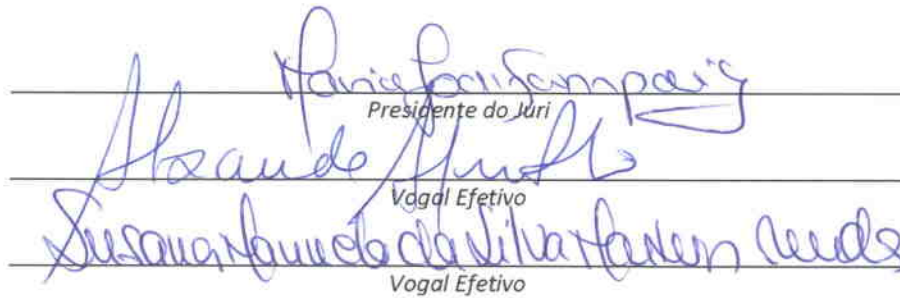 Maria José Sampaio
Presidente do Júri
Alexandre
Vogal Efetivo
Susana Manuela da Silva
Vogal Efetivo